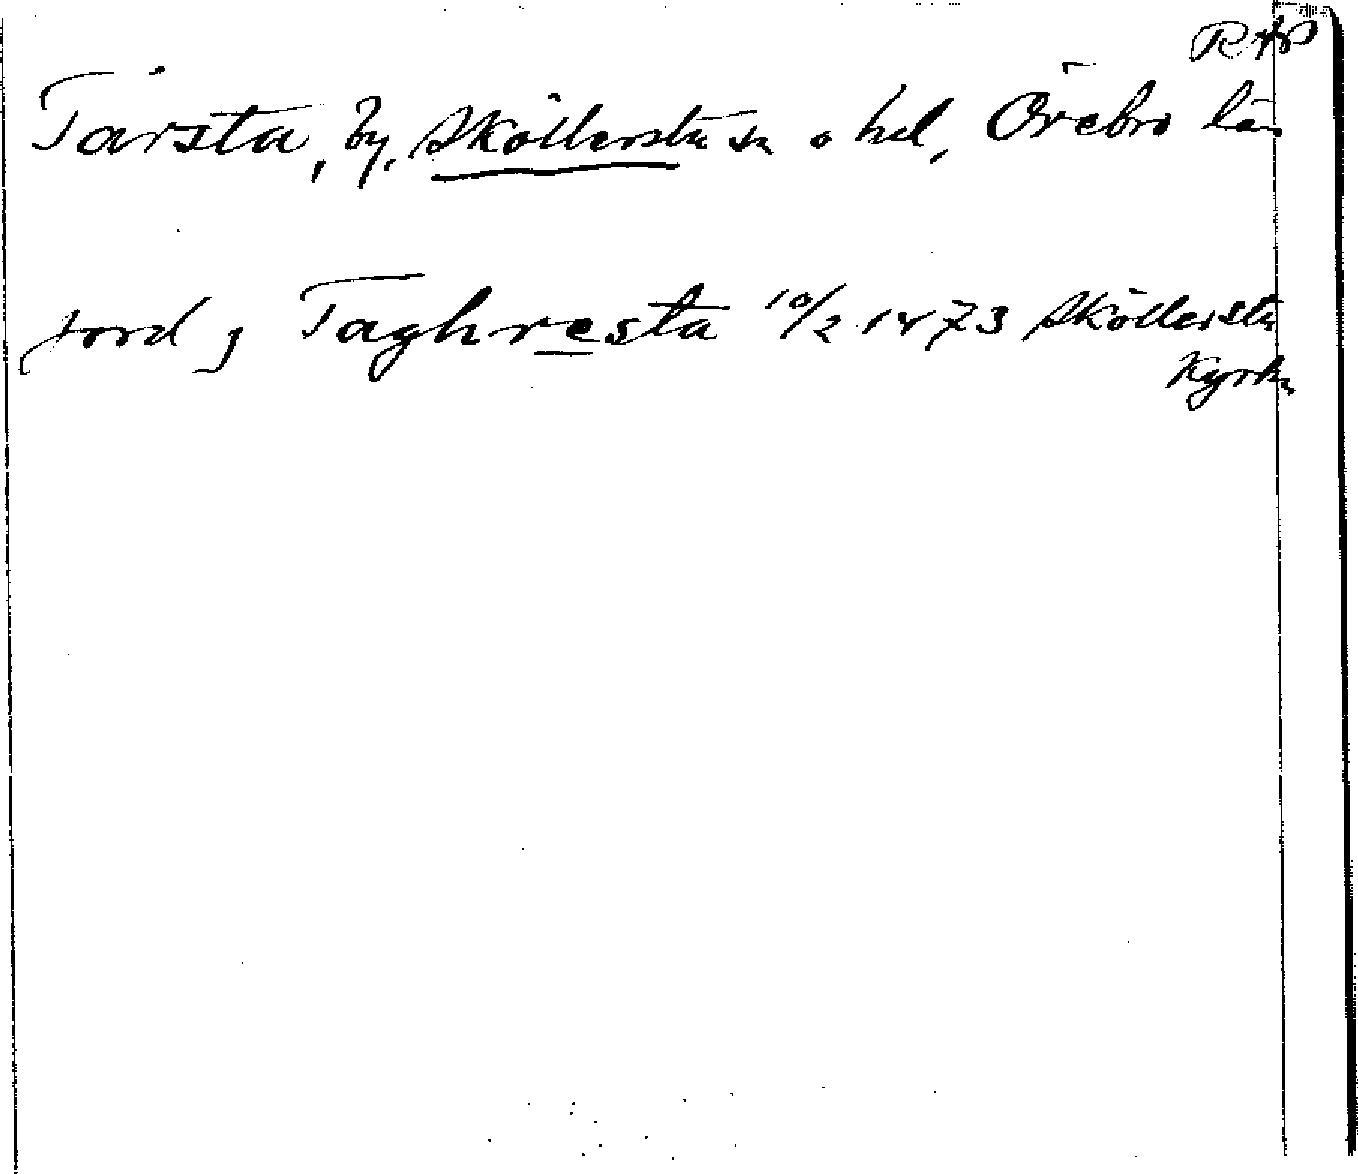 RAP
Tarsta, by, Sköllersta sn o hd, Örebro län
jord j Taghresta 10/2 1473 Sköllersta
Kyrka